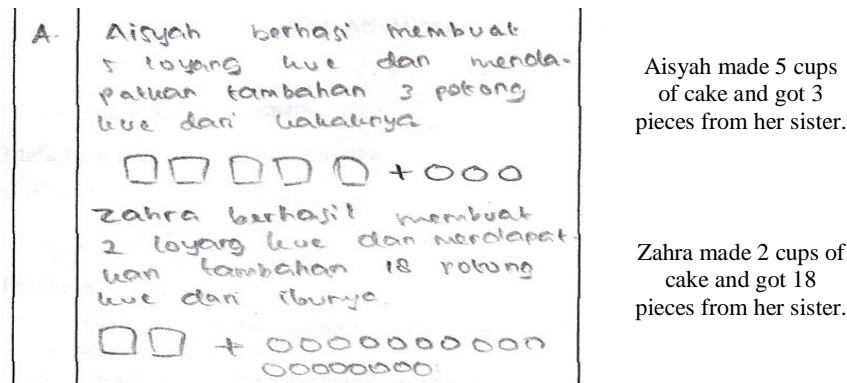 A.
Aisyah berhasi membuat
5 loyang kue dan menda-
patkan tambahan 3 potong
kue dari kakaknya
+
Zahra berhasil membuat
2 loyang kue dan mendapat
kan tambahan 18 potong
kue dari ibunya
+
Aisyah made 5 cups
of cake and got 3
pieces from her sister.
Zahra made 2 cups of
cake and got 18
pieces from her sister.